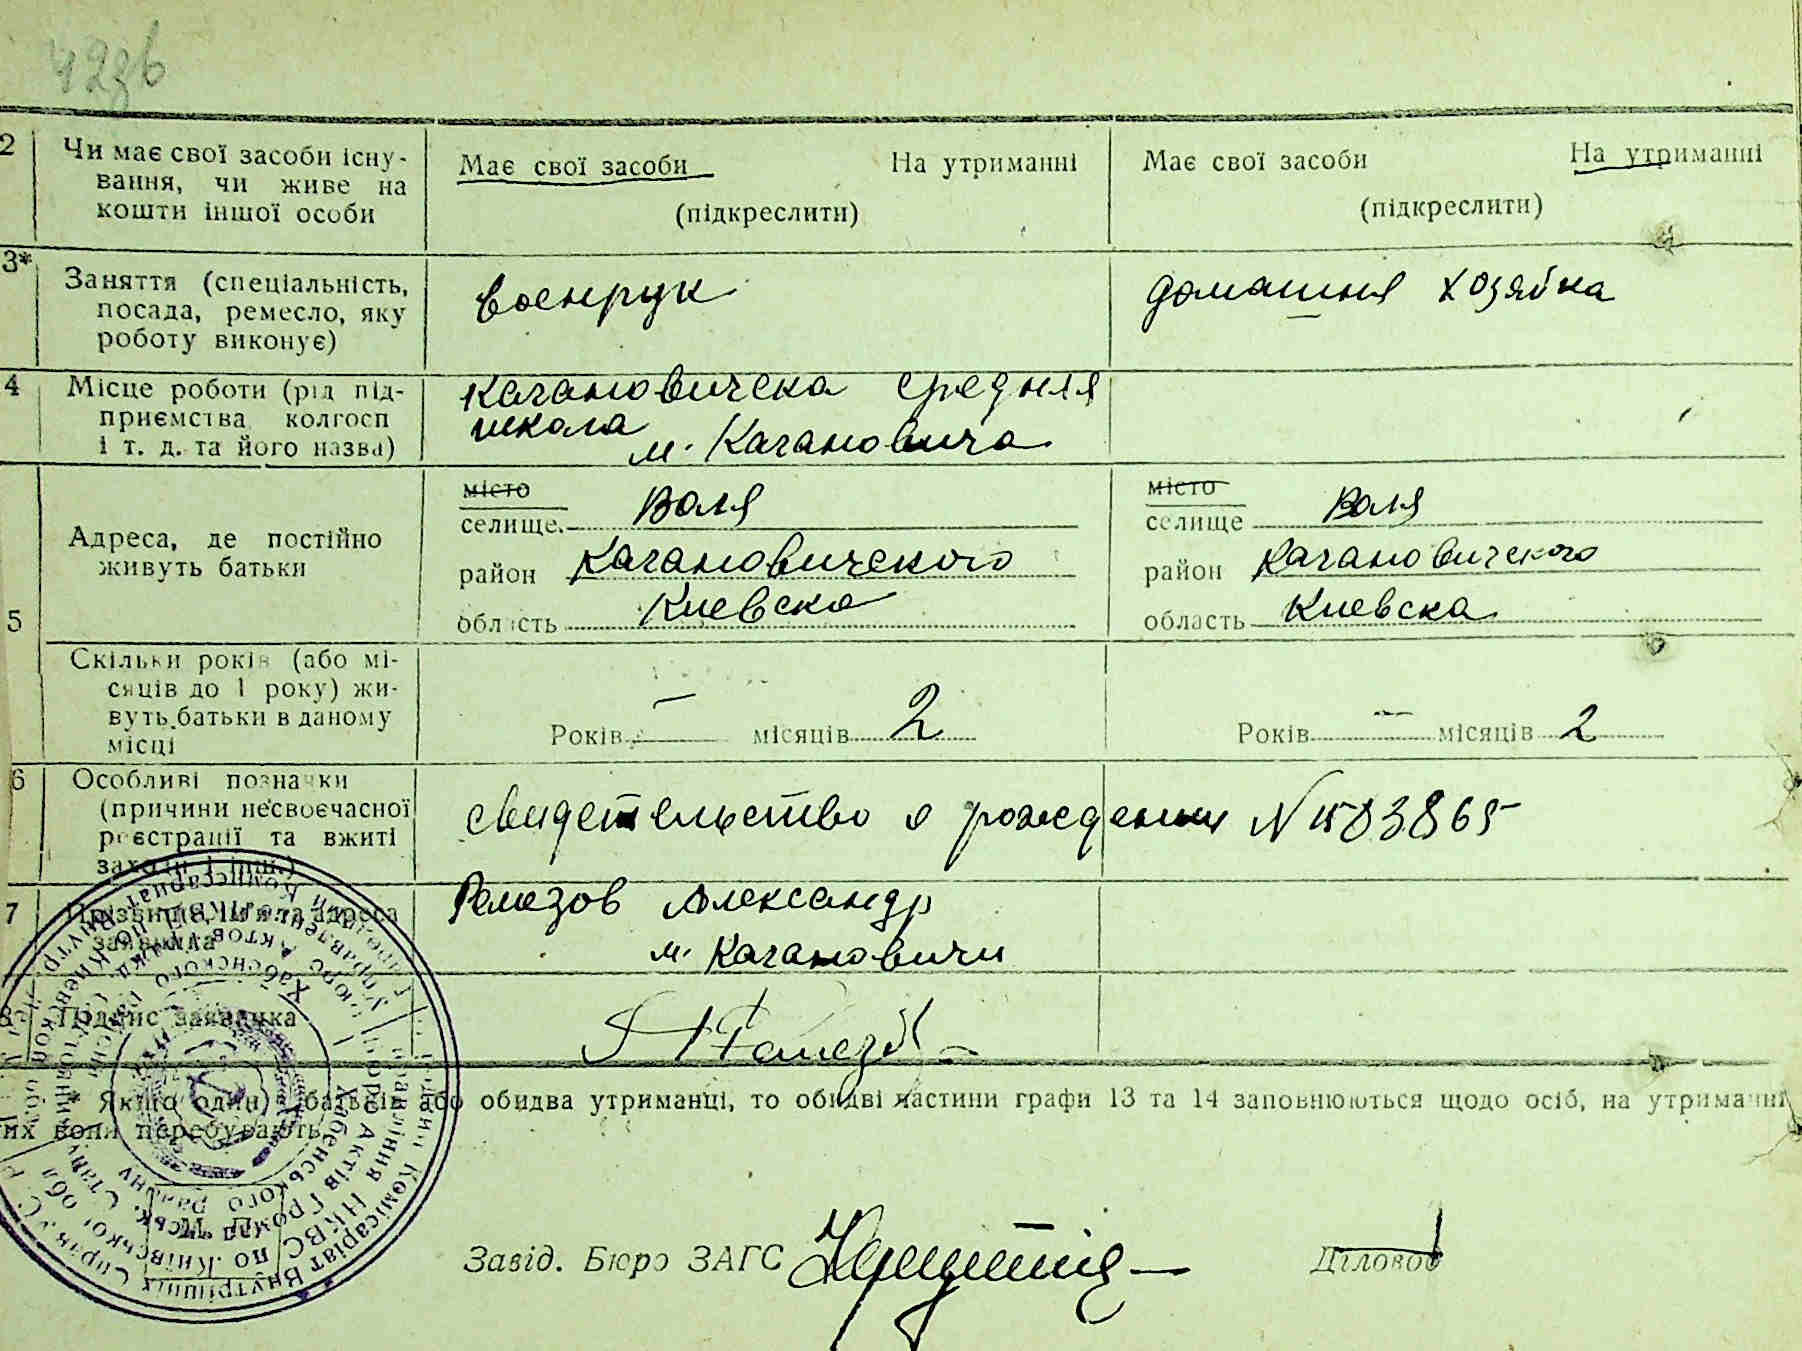 2 Чи має свої засоби існу-
вання, чи живе на
кошти іншої особи
Має свої засоби На утриманні
(підкреслити)
Має свої засоби На утриманні
(підкреслити)
3* Заняття (спеціальність,
посада, ремесло, яку
роботу виконує)
военрук
домашня хозяйка
4 Місце роботи (рід під-
приємства колгосп
і т. д. та його назва)
Кагановическа средняя
школа
м. Кагановича
5 Адреса, де постійно
живуть батьки
місто
селище Воля
район Кагановического
область Киевска
місто
селище Воля
район Кагановического
область Киевска
Скільки років (або мі-
сяців до 1 року) жи-
вуть батьки в даному
місці
Років — місяців 2
Років — місяців 2
6 Особливі позначки
(причини несвоєчасної
реєстрації та вжиті
заходи і інш.)
свидетельство о рождении N 1583865
7 Прізвище, ім'я та адреса
заявника
Ремезов Александр
м. Кагановичи
8 Підпис заявника
* Якщо один з батьків або обидва утриманці, то обидві частини графи 13 та 14 заповнюються щодо осіб, на утриманні
яких вони перебувають.
Завід. Бюро ЗАГС
Діловод